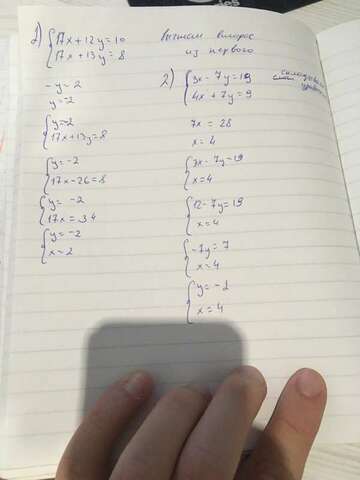 1) { 17x + 12y = 10
17x + 13y = 8
вычтем второе
из первого
-y = 2
y = -2
{ y = -2
17x + 13y = 8
{ y = -2
17x - 26 = 8
{ y = -2
17x = 34
{ y = -2
x = 2
2) { 3x - 7y = 19
4x + 7y = 9
7x = 28
x = 4
{ 3x - 7y = 19
x = 4
{ 12 - 7y = 19
x = 4
{ -7y = 7
x = 4
{ y = -1
x = 4